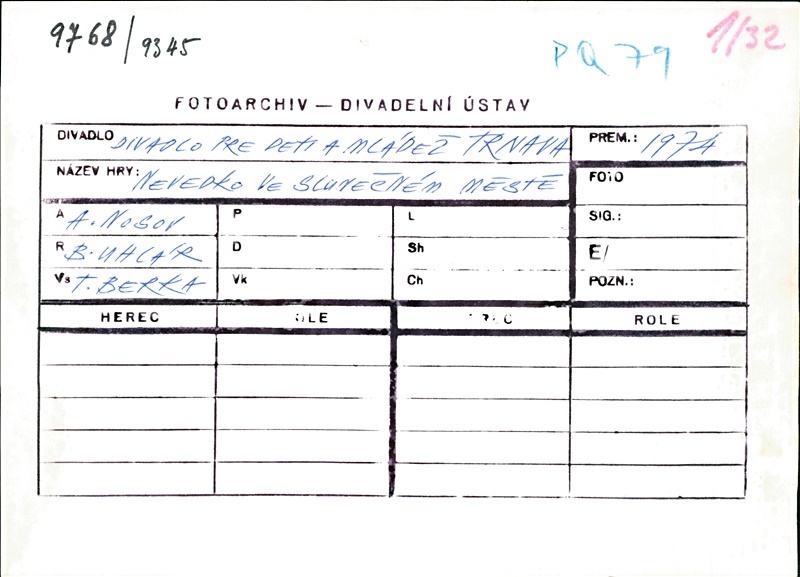 9768/9345
PQ 79
1/32
FOTOARCHIV — DIVADELNÍ ÚSTAV
DIVADLO DIVADLO PRE DETI A MLÁDEŽ TRNAVA
PREM.: 1974
NÁZEV HRY: NEVEDKO VE SLUNEČNÉM MĚSTĚ
FOTO
A A. NOSOV
P
L
SIG.:
R B. UHLÁR
D
Sh
E/
Vs T. BERKA
Vk
Ch
POZN.:
HEREC
ROLE